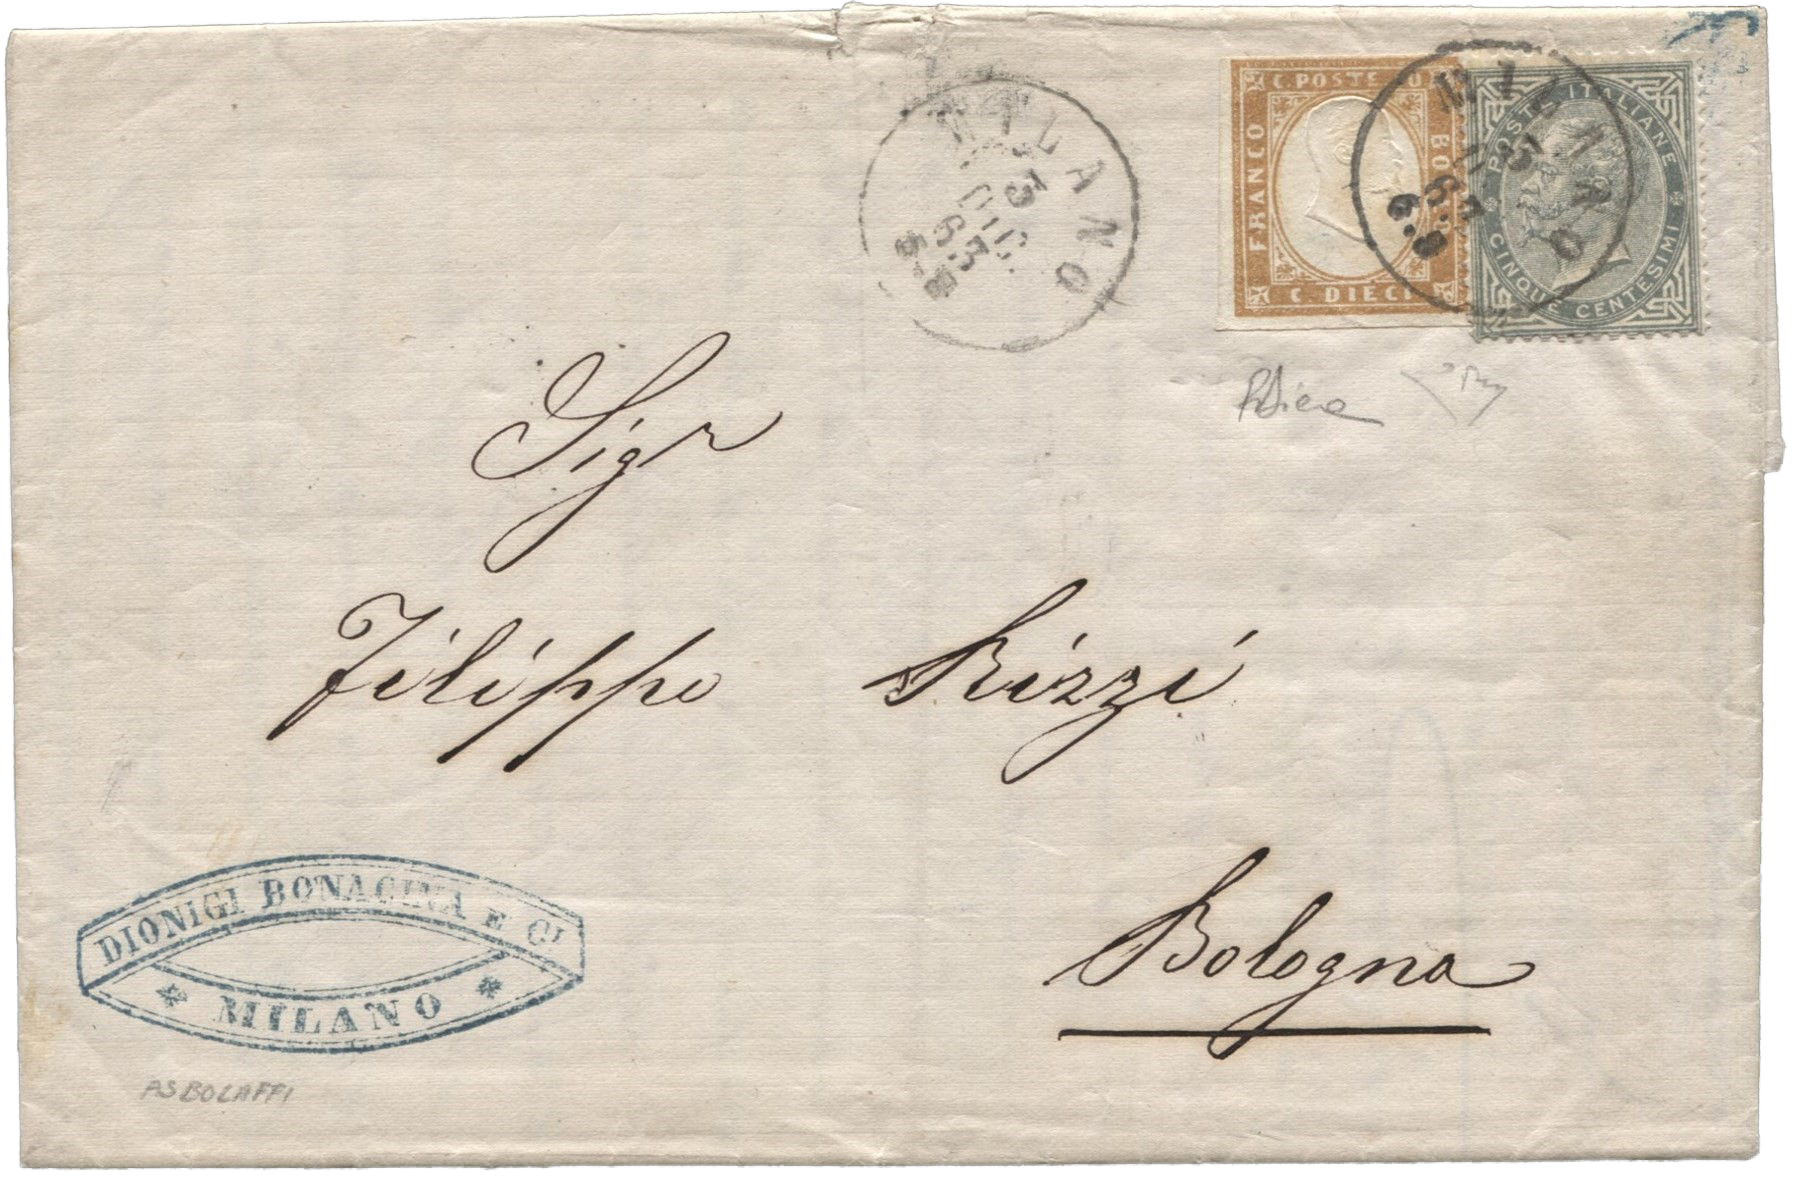 MILANO
3
DIC.
63
5-S
C. POSTE
FRANCO
BOLLO
C. DIECI
MILANO
3
63
POSTE ITALIANE
CINQUE CENTESIMI
Sigr
Filippo Rizzi
Bologna
DIONIGI BONACINA E CI
* MILANO *
ASBOLAFFI